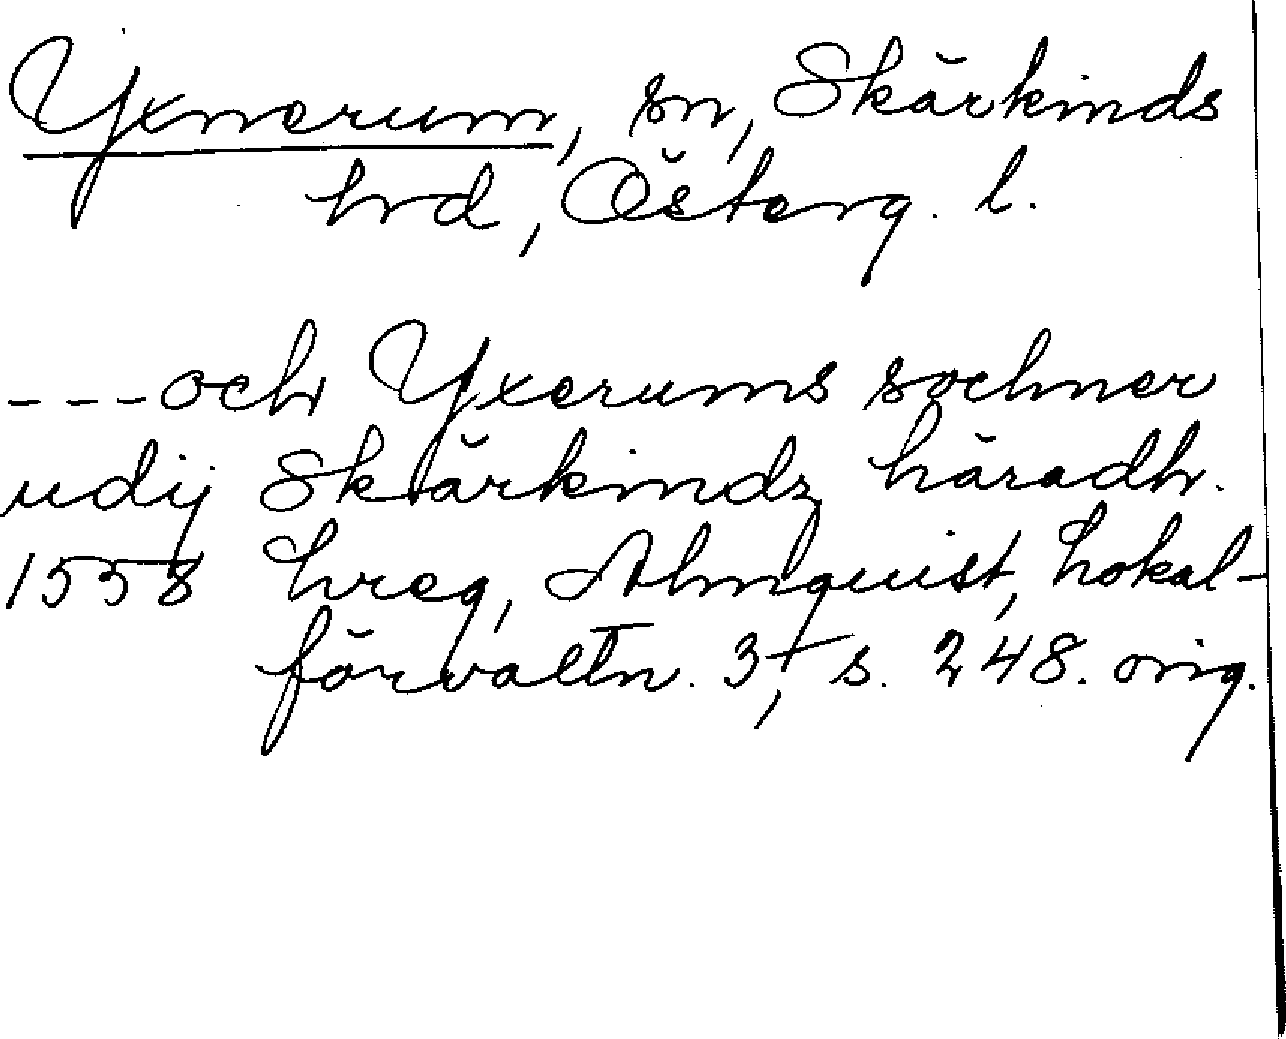 Yxnerum, sn, Skärkinds
hrd, Österg. l.
---och Yxerums sochner
udij Skärkindz häradh.
1558 hreg, Almquist, Lokal-
förvaltn. 3, s. 248. orig.